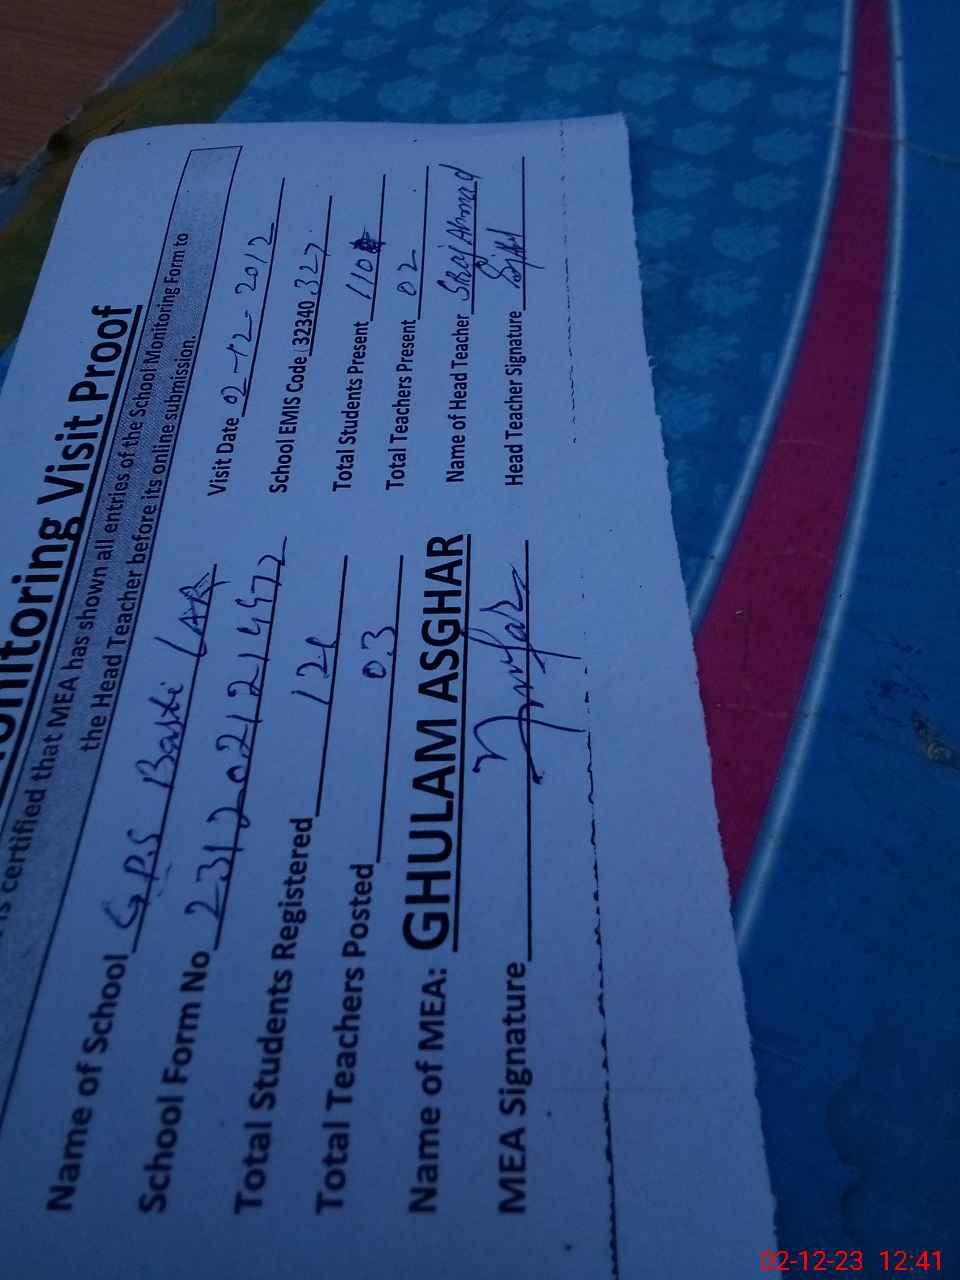 onitoring Visit Proof
is certified that MEA has shown all entries of the School Monitoring Form to
the Head Teacher before its online submission.
Name of School GPS Basti LAR Visit Date 02-12-2012
School Form No School EMIS Code 32340 327
Total Students Registered 126 Total Students Present 110
Total Teachers Posted 03 Total Teachers Present 02
Name of MEA: GHULAM ASGHAR Name of Head Teacher Ahmad
MEA Signature Head Teacher Signature
02-12-23 12:41